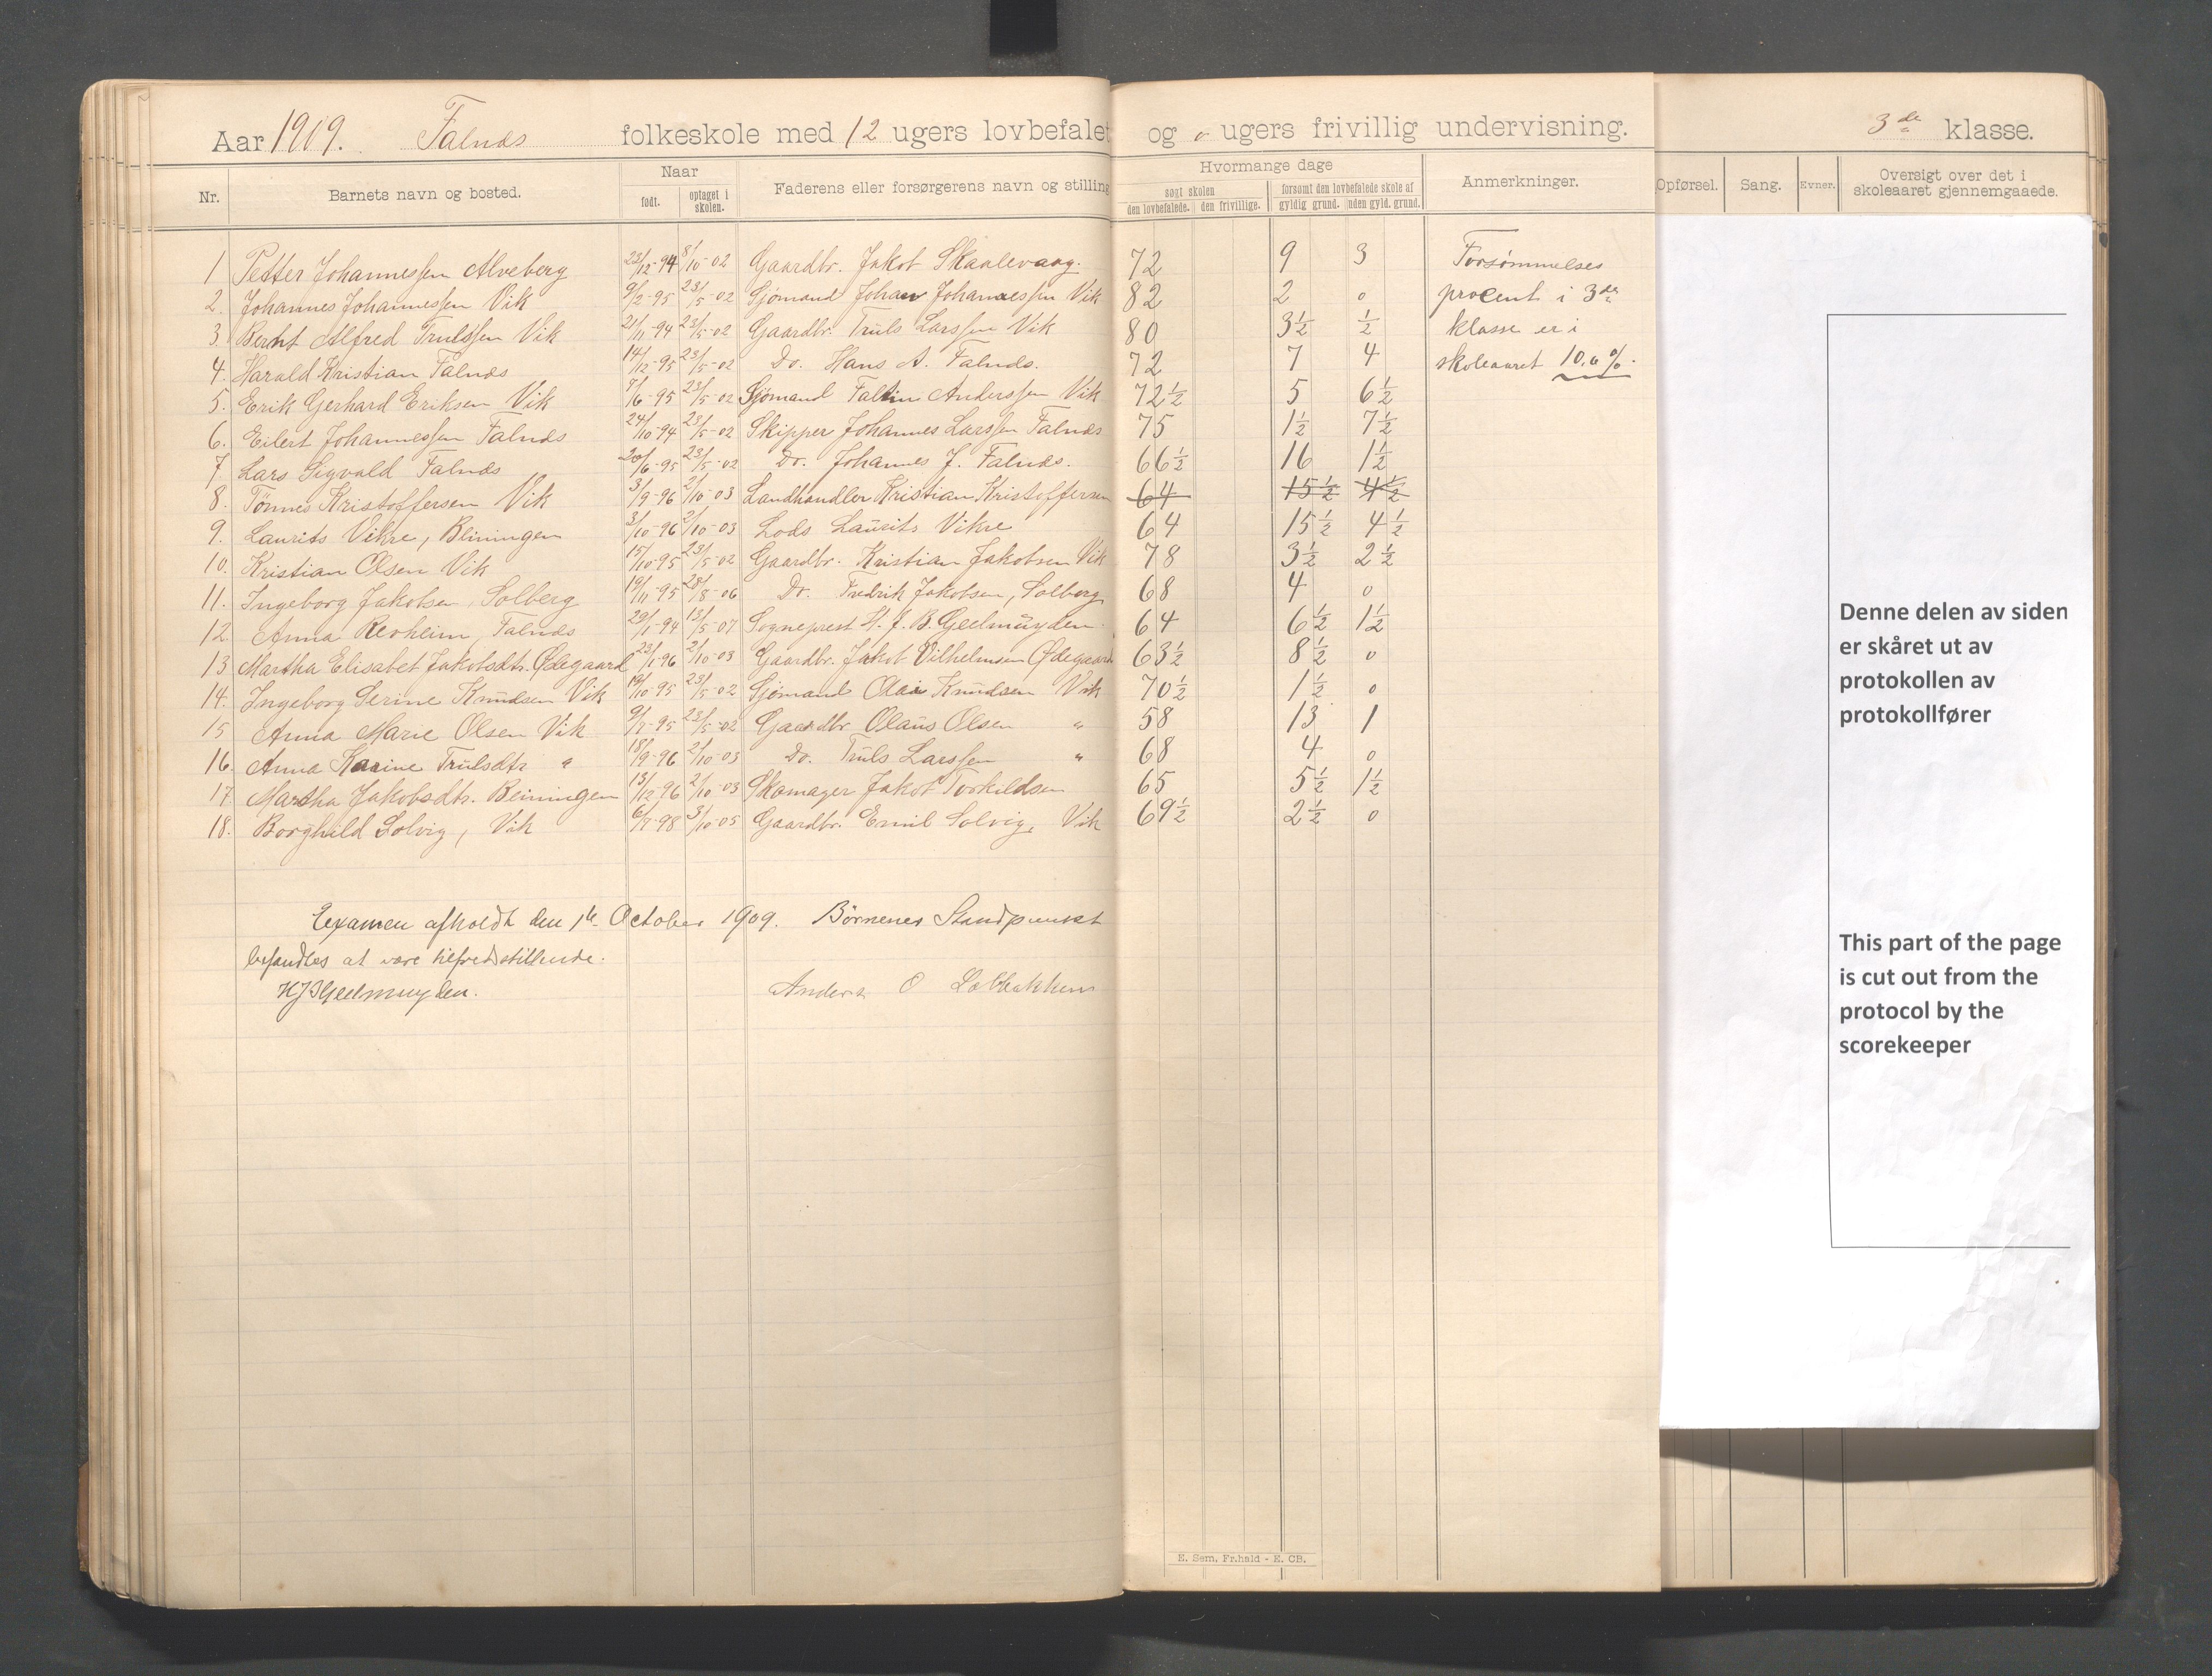 Aar 1909. Falnæs folkeskole med 12 ugers lovbefalet og 0 ugers frivillig undervisning. 3de klasse.
Nr. Barnets navn og bosted. Naar født. optaget i skolen. Faderens eller forsørgerens navn og stilling Hvormange dage søgt skolen den lovbefalede. den frivillige. forsømt den lovbefalede skole af gyldig grund. uden gyld. grund. Anmerkninger. Opførsel. Sang. Evner. Oversigt over det i skoleaaret gjennemgaaede.
1 Petter Johannessen Alveberg 23/12-94 8/10-02 Gaardbr. Jakob Skaalevaag. 72 9 3 Forsømmelses
2. Johannes Johannessen Vik 9/2-95 23/5-02 Sjømand Johan Johannessen Vik 82 2 0 procent i 3de
3. Bernt Alfred Trulssen Vik 21/11-94 23/5-02 Gaardbr. Truls Larssen Vik 80 3½ ½ klasse er i
4. Harald Kristian Falnæs 14/12-95 23/5-02 Do. Hans A. Falnæs. 72 7 4 skoleaaret 10,6 %.
5. Erik Gerhard Eriksen Vik 7/6-95 23/5-02 Sjømand Faltin Anderssen Vik 72½ 5 6½
6. Eilert Johannessen Falnæs 24/10-94 23/5-02 Skipper Johannes Larssen Falnæs 75 1½ 7½
7. Lars Sigvald Falnæs 20/6-95 23/5-02 Do. Johannes J. Falnæs. 66½ 16 1½
8. Tønnes Kristoffersen Vik 3/9-96 2/10-03 Landhandler Kristian Kristoffersen 64 15½ 4½
9. Laurits Vikre, Beiningen 3/10-96 2/10-03 Lods Laurits Vikre 64 15½ 4½
10. Kristian Olsen Vik 15/10-95 23/5-02 Gaardbr. Kristian Jakobsen Vik 78 3½ 2½
11. Ingeborg Jakobsen, Solberg 19/11-95 28/8-06 Do. Fredrik Jakobsen, Solberg 68 4 0
12. Anna Revheim, Falnæs 29/1-94 13/5-07 Sogneprest H. J. B. Geelmuyden. 64 6½ 1½
13. Martha Elisabet Jakobsdtr. Ødegaard 23/1-96 2/10-03 Gaardbr. Jakob Vilhelmsen Ødegaard 63½ 8½ 0
14. Ingeborg Serine Knudsen Vik 19/10-95 23/5-02 Sjømand Olai Knudsen Vik 70½ 1½ 0
15 Anna Marie Olsen Vik 9/7-95 23/5-02 Gaardbr. Olaus Olsen " 58 13 1
16. Anna Karine Trulsdtr " 18/9-96 2/10-03 Do. Truls Larssen " 68 4 0
17. Martha Jakobsdtr. Beiningen 13/12-96 2/10-03 Skomager Jakob Torkildsen 65 5½ 1½
18. Borghild Solvig, Vik 6/7-98 3/10-05 Gaardbr. Emil Solvig, Vik 69½ 2½ 0
Examen afholdt den 1te October 1909. Børnenes Standpunkt
befandtes at være tilfredsstillende.
HJBGeelmuyden. Anders O
E. Sem, Fr.hald - E. CB.
Denne delen av siden
er skåret ut av
protokollen av
protokollfører
This part of the page
is cut out from the
protocol by the
scorekeeper